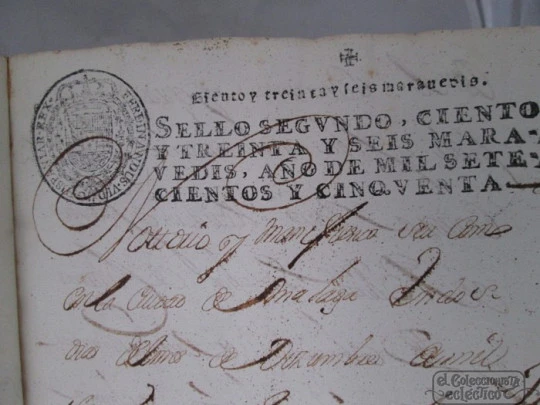 Ciento y treinta y seis maravedis.
SELLO SEGVNDO, CIENTO
Y TREINTA Y SEIS MARA-
VEDIS, AÑO DE MIL SETE-
CIENTOS Y CINQVENTA
Notorio y manifiesto sea como
en la Ciudad de Malaga en dos
dias del mes de Diziembre de mil
el Coleccionista
ecléctico